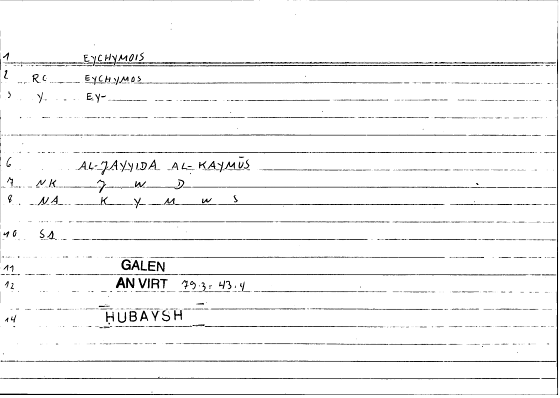 1 EYCHYMOIS
2 RC EYCHYMOS
3 Y. EY-
6 AL-JAYYIDA AL-KAYMŪS
7 NK J W D
8 NA K Y M W S
10 SA
11 GALEN
12 AN VIRT 79.3 = 43.4
14 HUBAYSH